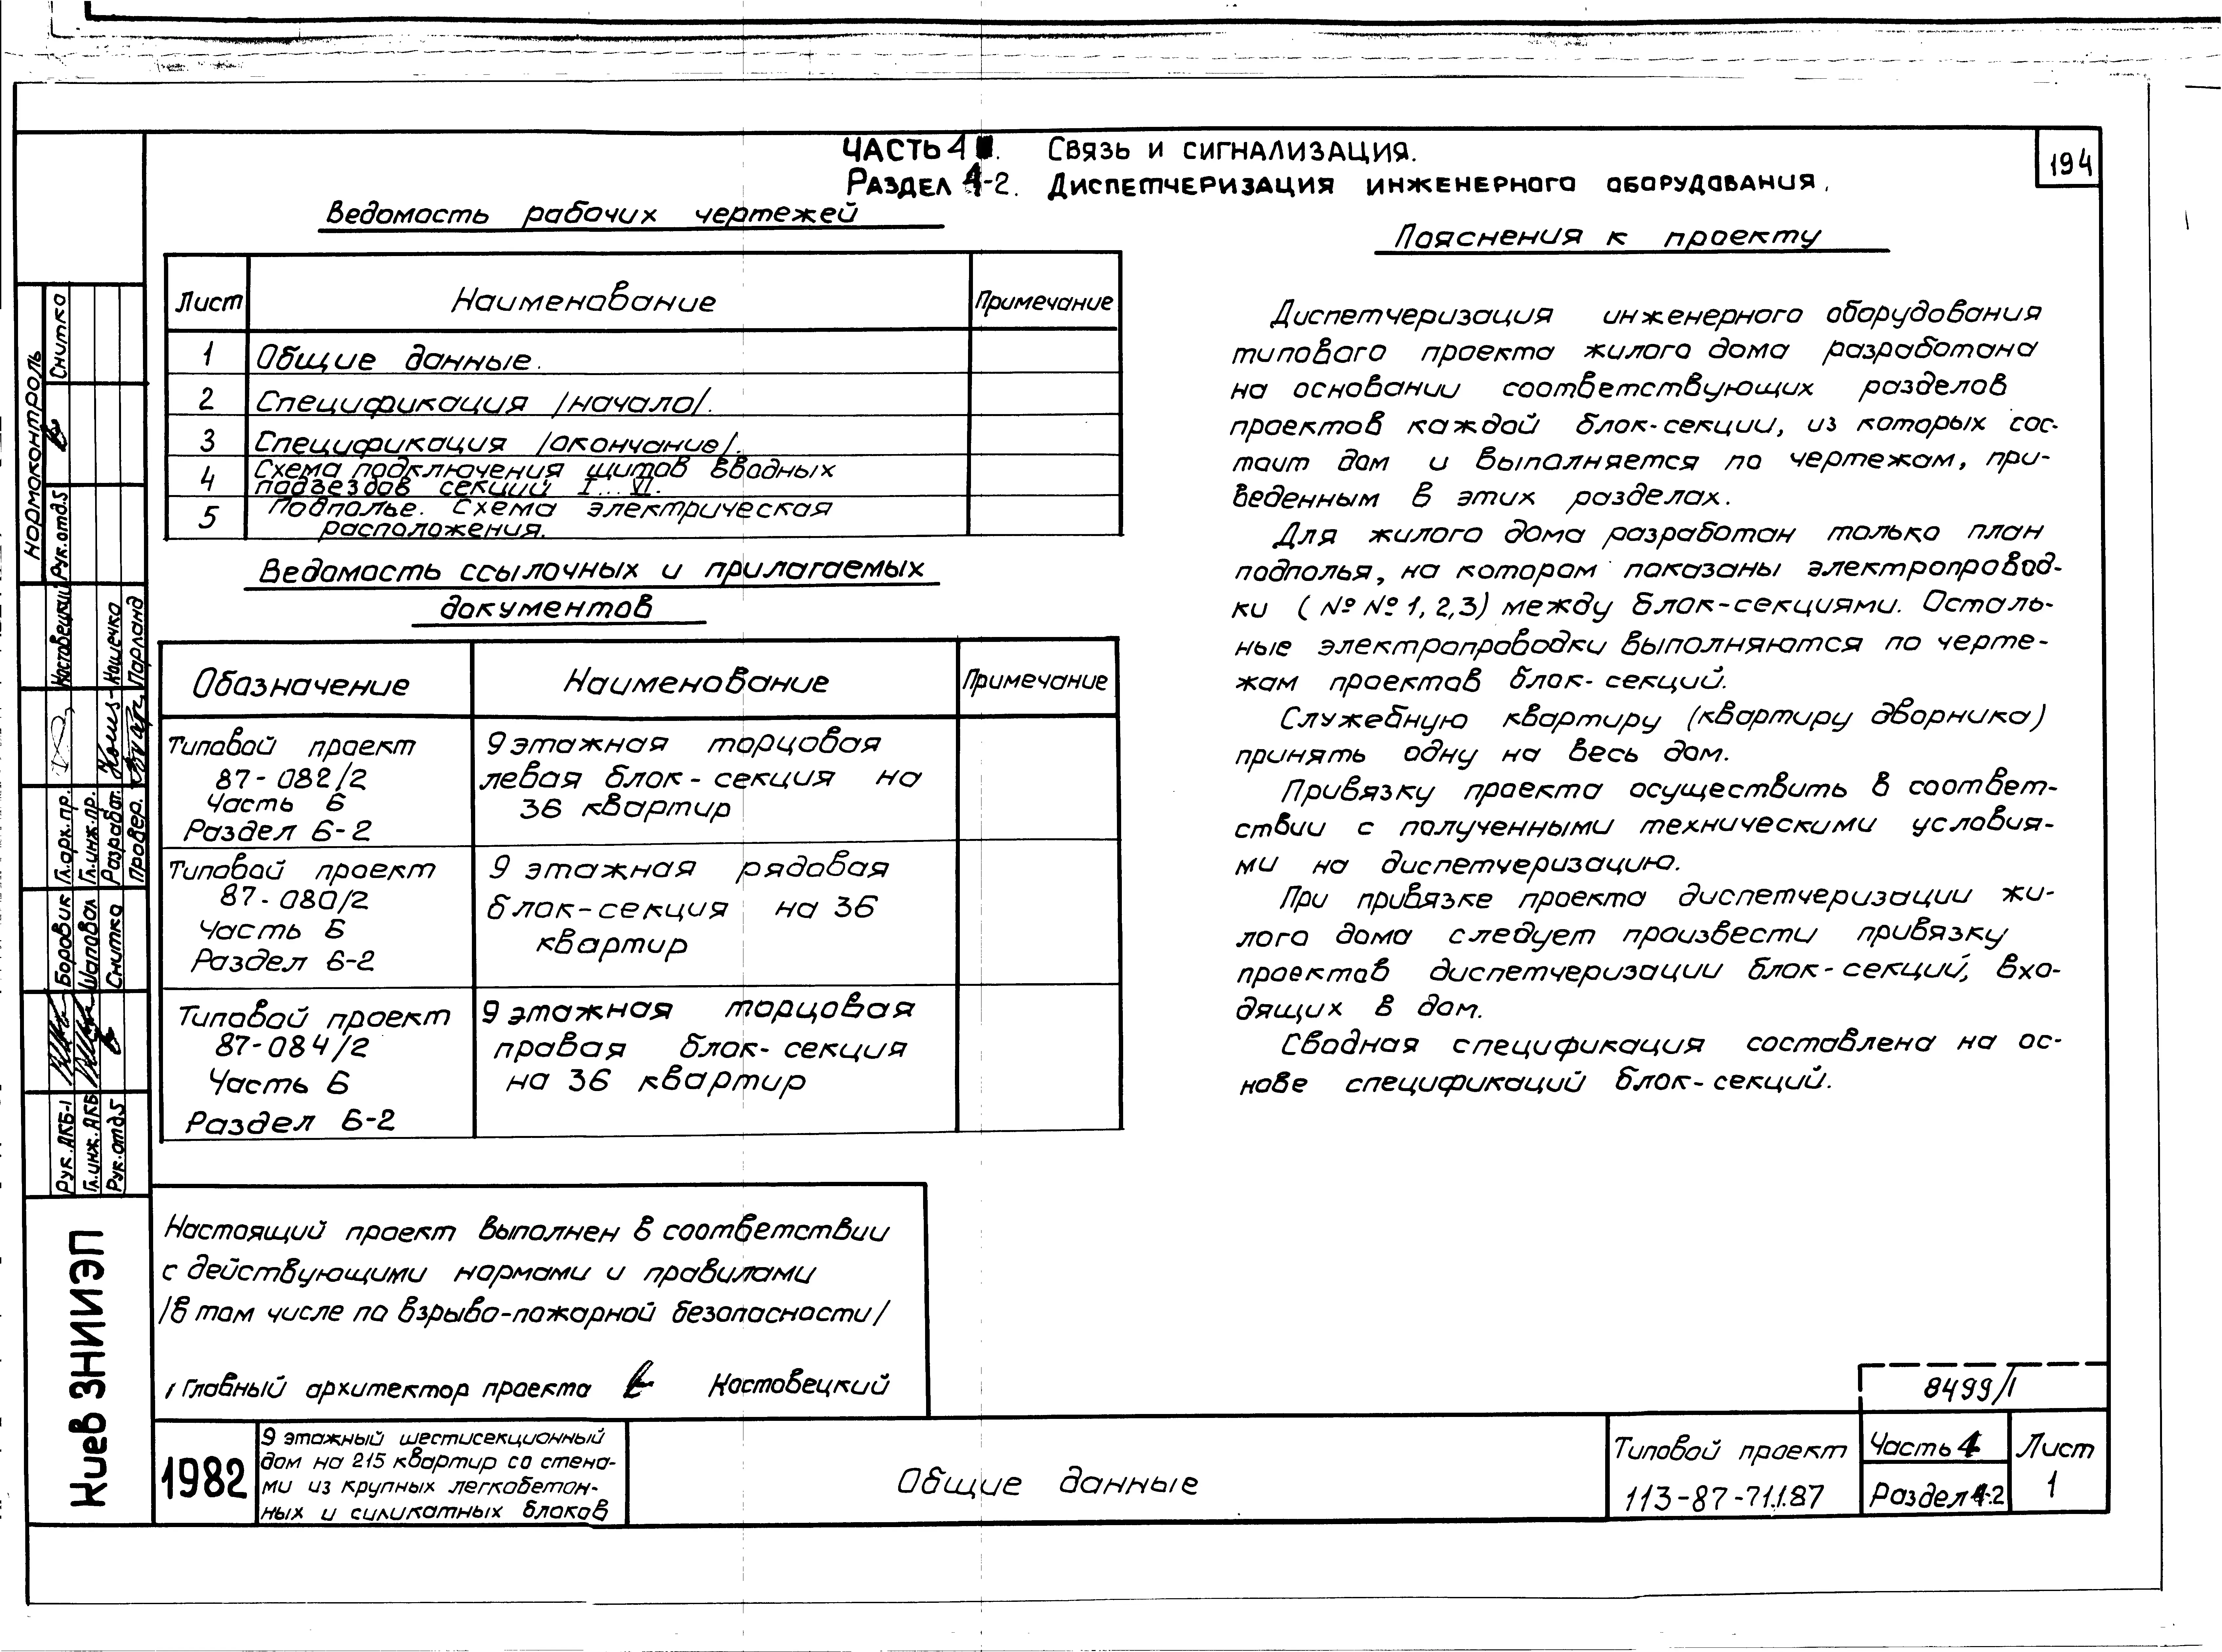 ЧАСТЬ 4. Связь и сигнализация.
Раздел 4-2. Диспетчеризация инженерного оборудования.
194
Ведомость рабочих чертежей
Лист Наименование Примечание
1 Общие данные.
2 Спецификация /начало/.
3 Спецификация /окончание/.
4 Схема подключения щитов вводных
подъездов секций I...VI.
5 Подполье. Схема электрическая
расположения.
Ведомость ссылочных и прилагаемых
документов
Обозначение Наименование Примечание
Типовой проект
87-082/2
Часть 6
Раздел 6-2
9 этажная торцовая
левая блок-секция на
36 квартир
Типовой проект
87-080/2
Часть 6
Раздел 6-2
9 этажная рядовая
блок-секция на 36
квартир
Типовой проект
87-084/2
Часть 6
Раздел 6-2
9 этажная торцовая
правая блок-секция
на 36 квартир
Пояснения к проекту
Диспетчеризация инженерного оборудования
типового проекта жилого дома разработана
на основании соответствующих разделов
проектов каждой блок-секции, из которых сос-
тоит дом и выполняется по чертежам, при-
веденным в этих разделах.
Для жилого дома разработан только план
подполья, на котором показаны электропровод-
ки (№№1,2,3) между блок-секциями. Осталь-
ные электропроводки выполняются по черте-
жам проектов блок-секций.
Служебную квартиру (квартиру дворника)
принять одну на весь дом.
Привязку проекта осуществить в соответ-
ствии с полученными техническими условия-
ми на диспетчеризацию.
При привязке проекта диспетчеризации жи-
лого дома следует произвести привязку
проектов диспетчеризации блок-секций, вхо-
дящих в дом.
Сводная спецификация составлена на ос-
нове спецификаций блок-секций.
Настоящий проект выполнен в соответствии
с действующими нормами и правилами
/в том числе по взрыво-пожарной безопасности/
Главный архитектор проекта Костовецкий
Нормоконтроль
Рук.отд.5 Снитко
Гл.арх.пр. Костовецкий
Гл.инж.пр.
Разработ. Кошечко
Провер. Парланд
Рук.АКБ-1 Боровик
Гл.инж.АКБ Шаповал
Рук.отд.5 Снитко
Киев ЗНИИЭП
1982
9 этажный шестисекционный
дом на 215 квартир со стена-
ми из крупных легкобетон-
ных и силикатных блоков
Общие данные
8499/1
Типовой проект
113-87-71.1.87
Часть 4
Раздел 4-2
Лист
1